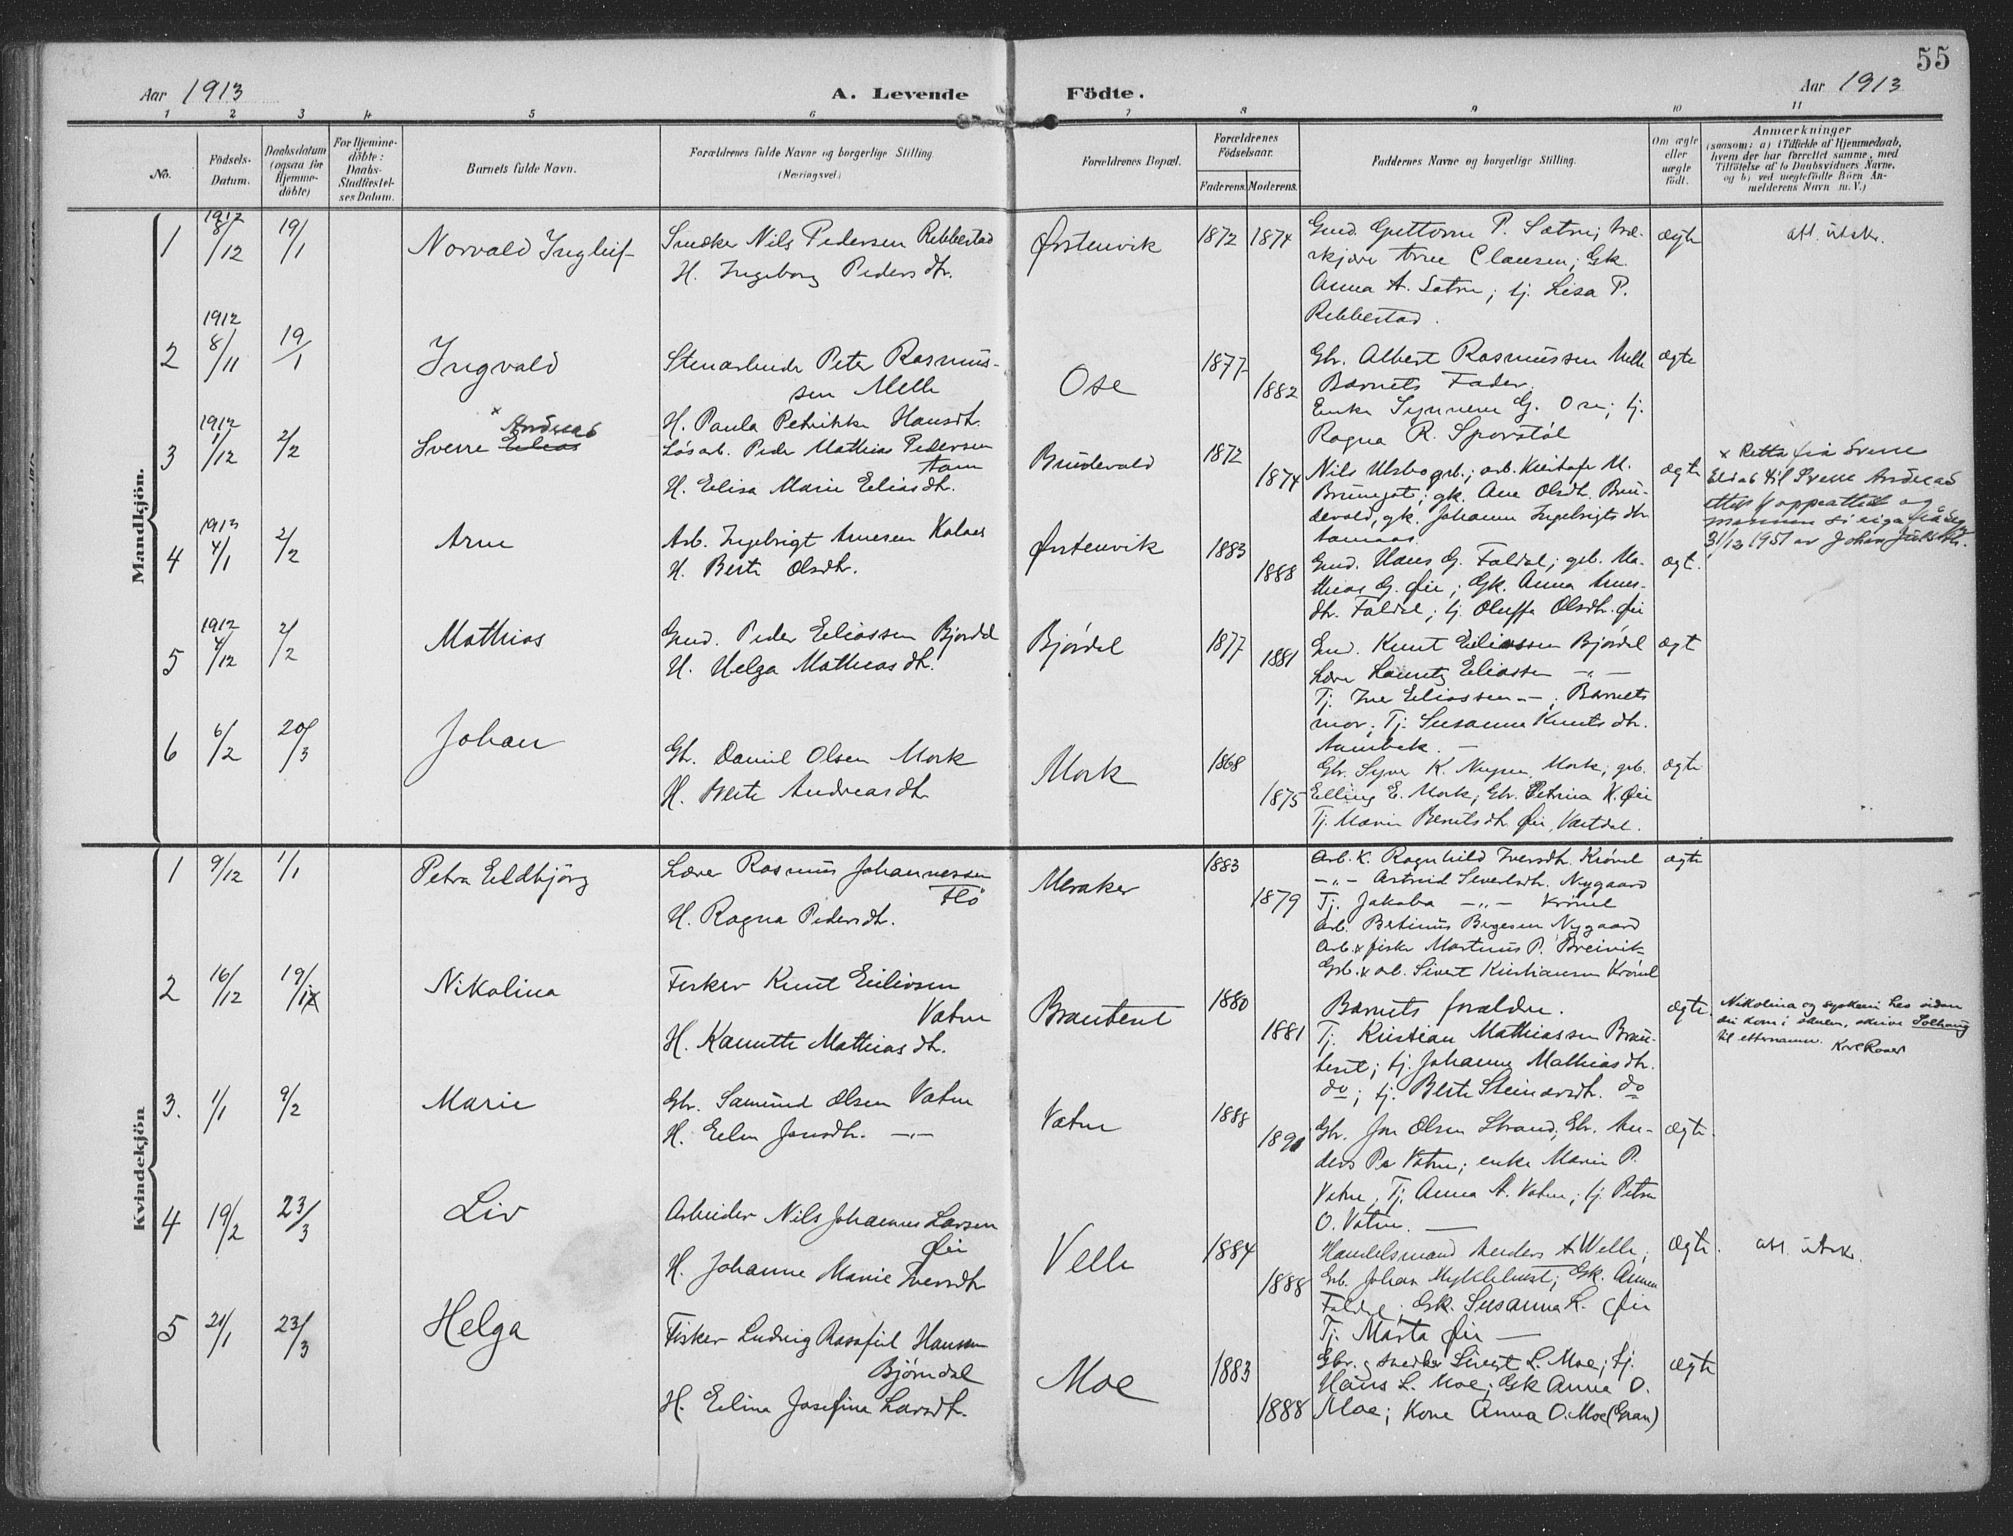 55
Aar 1913
A. Levende Födte.
Aar 1913
1 2 3 4 5 6 7 8 9 10 11
No.
Födsels-Datum.
Daabsdatum (ogsaa for Hjemmedöbte)
For Hjemmedöbte: Daabs-Stadfæstelses Datum.
Barnets fulde Navn.
Forældrenes fulde Navne og borgerlige Stilling
(Næringsvei.)
Forældrenes Bopæl.
Forældrenes Födselsaar.
Faderens. Moderens.
Faddernes Navne og borgerlige Stilling.
Om ægte eller uægte født.
Anmærkninger
(saasom: a) i Tilfælde af Hjemmedaab, hvem der har forrettet samme, med Tilföielse af to Daabsvidners Navne, og b) ved uægtefödte Börn Anmelderens Navn m. V.)
Mandkjön.
1 1912 8/12 19/1 Norvald Ingleif
Snedker Nils Pedersen Ribbestad
H. Ingeborg Pedersdtr.
Ørstenvik 1872 1874
Gmd. Guttorm P. Sætre;
skjære Arne Clausen; Gk.
Anna A. Sætre; tj. Lisa P.
Ribbestad.
ægte
att. utskr.
2 1912 8/11 19/1 Ingvald
Stenarbeider Peter Rasmus-
sen Melle
H. Paula Petrikke Hansdtr.
Ose 1877 1882
Gbr. Albert Rasmussen Melle
Barnets Fader.
Enke Synneve G. Ose; tj.
Ragna R. Sporstøl
ægte
3 1912 1/12 2/2 Sverre Elias
x Andreas
Løsarb. Peder Mathias Pedersen
Aam
H. Elisa Marie Eliasdtr.
Brudevold 1872 1874
Nils Ulsbø grb.; arb. M.
gk. Ane Olsdtr. Bru-
devold, gk. Johanne Ingebrigtsdtr
ægte
x Retta frå Sverre
Elias til Sverre Andreas
etter
31/12 1951 av Johan
4 1913 4/1 2/2 Arne
Arb. Ingebrigt Arnesen Kolaas
H. Berte Olsdtr.
Ørstenvik 1883 1888
Gmd. Hans G. Foldal; grb. Ma-
thias G. Øie; Gk. Anna Arnes-
dtr. Foldal; tj. Oluffa Olsdtr. Øie
ægt.
5 1912 4/12 2/2 Mathias
Gmd. Peder Eliassen Bjørdal
H. Helga Mathiasdtr.
Bjørdal 1877 1881
Gmd. Knut Eliassen Bjørdal
Lærer Lauritz Eliassen -"-
Tj. Ine Eliassen -"-. Barnets
mor; Tj. Susanne Knutsdtr.
Aambak. -
ægt
6 6/2 20/3 Johan
Gbr. Daniel Olsen Mork
H. Berte Andreasdtr
Mork 1868 1875
Gbr. Syver K. Mork; grb.
Elling E. Mork; Gbr. Petrina K. Øie
Tj. Marie Berntsdtr. Øie, Vartdal.
ægte
Kvindekjön
1 9/12 1/1 Petra Eldbjörg
Lærer Rasmus Johannessen
Flö
H. Ragna Pedersdtr.
Meraker 1883 1879
Arb. K. Ragnhild Iversdtr. Krövel
-"- Astrid Sivertsdtr. Nygaard
Tj. Jakoba -"- Krövel
Arb. Bertinus Birgesen Nygaard
Arb. & fisker Martinus P. Breivik
Grb. & arb. Sivert Kristiansen Krövel
ægte
2 16/12 19/1 Nikolina
Fisker Knut Eilivsen
Vatne
H. Kanutte Mathiasdtr.
Brauteset 1880 1881
Barnets forældre.
Tj. Kristian Mathiassen Brau-
teset; tj. Johanne Mathiasdtr.
do; tj. Berte Steinarsdtr. do
ægte.
Nikolina og syskeni hes sidan
dei kom i skulen, skrive Solhaug
til etternamn. Karl Roaer
3. 1/1 9/2 Marie
Gbr. Samund Olsen Vatne
H. Elen Jonsdtr. -"-
Vatne 1888 1890
Gbr. Jon Olsen Strand; Gbr. An-
ders Pe Vatne; enke Marie P.
Vatne; Tj. Anna A. Vatne; tj. Petra
O. Vatne. -
ægte.
4 19/2 23/3 Liv
Arbeider Nils Johannes Larsen
Øie
H. Johanne Marie Iversdtr
Velle 1884 1888
Handelsmand Anders A Welle,
Grb. Johan Myklebust; Gk. Anna
Foldal; Gk. Susanna L. Øie
Tj. Marta Øie -
ægte.
att. utskr.
5 21/1 23/3 Helga
Fisker Ludvig Hansen
Bjørndal
H. Eline Josefine Larsdtr.
Moe 1883 1888
Gbr. & snedker Sivert L. Moe; tj.
Hans L. Moe; Gk Anna O.
Moe; Kone Anna O. Moe (Gran)
ægte